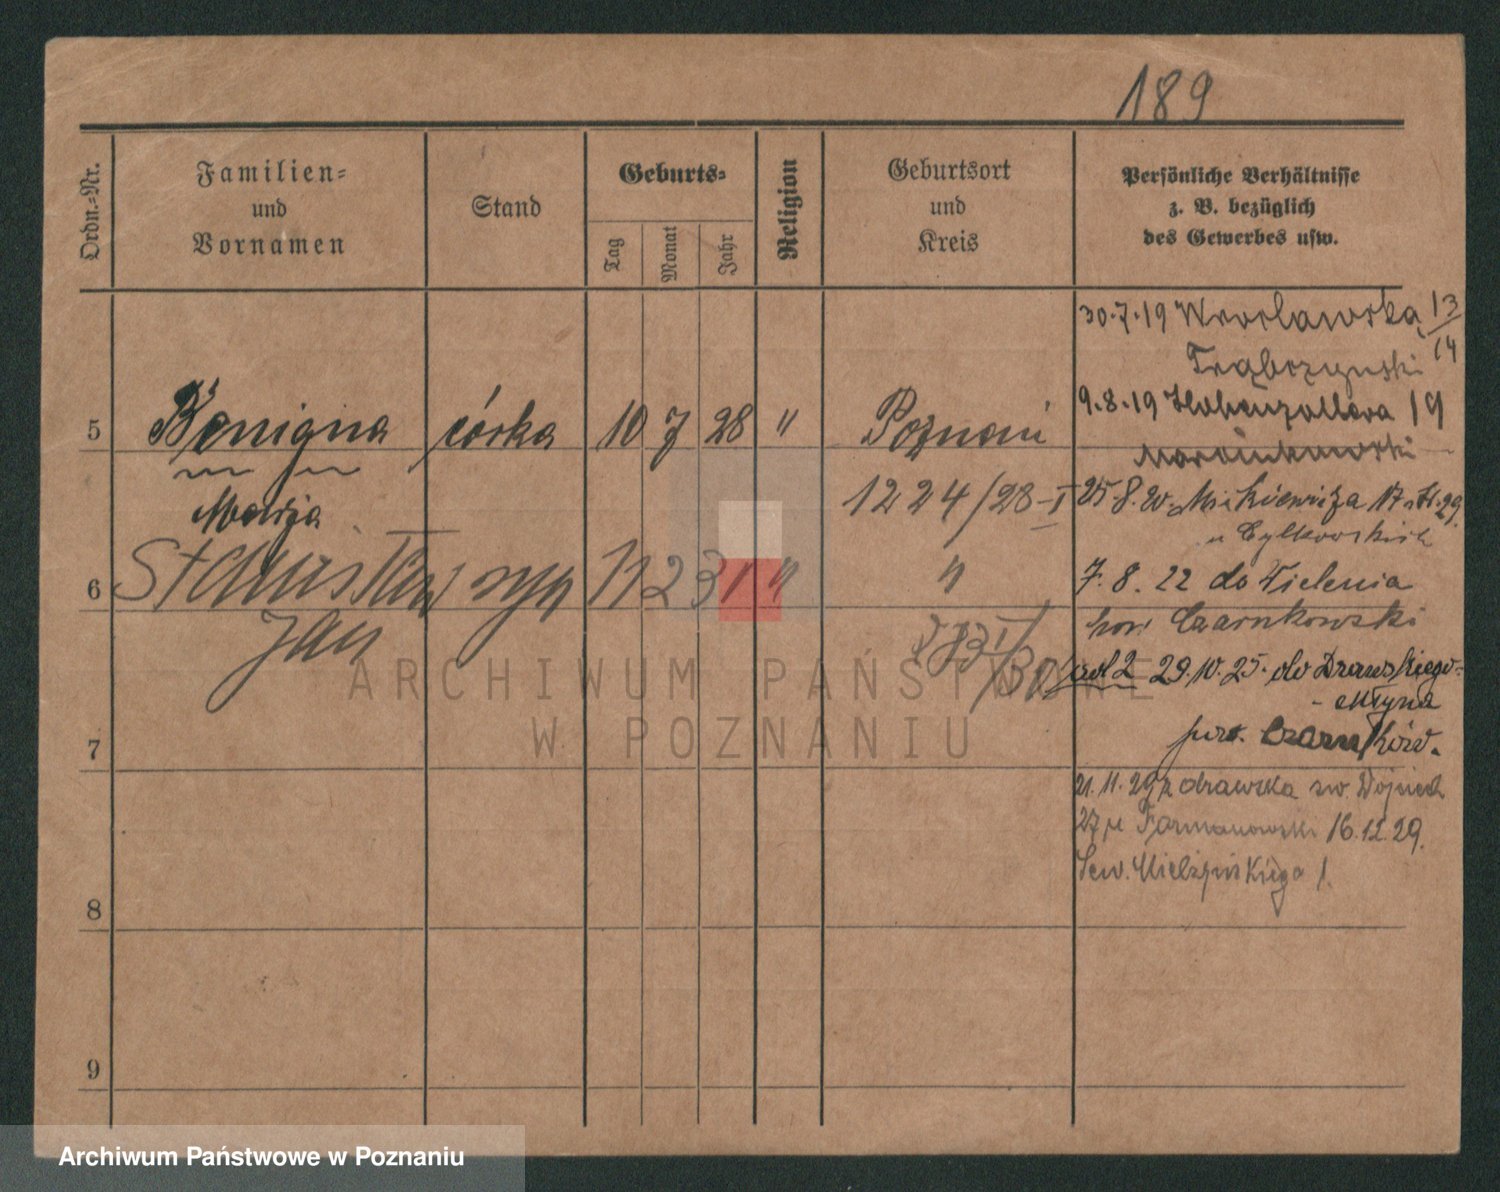 189
Ordn.-Nr.
Familien-
und
Vornamen
Stand
Geburts-
Tag
Monat
Jahr
Religion
Geburtsort
und
Kreis
Persönliche Verhältnisse
z. B. bezüglich
des Gewerbes usw.
30.7.19 Wrocławska 13/14
Trąbczyński
5 Benigna córka 10 7 28 " Poznań
9.8.19 Hohenzollera 19
Marcinkowski
Marja
1224/28-I
25.8. Mickiewicza 17 29
u
6 Stanisław syn 11 2 31 " "
7.8.22 do Wielenia
pow Czarnkowski
Jan
ad 2 29.10.25. do Drawskiego-
- Młyna
7
pow. Czarnków.
21.11.29 z drawska św. Wojciech
27 u Furmanowski 16.12.29.
Sew. Mielżyńskiego 1.
8
9
ARCHIWUM PAŃSTWOWE
W POZNANIU
Archiwum Państwowe w Poznaniu